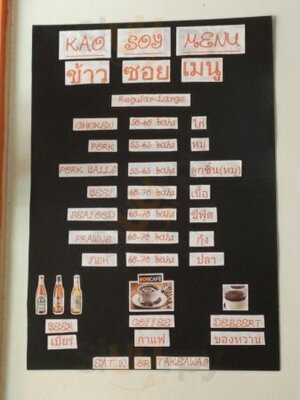 KAO SOY MENU
ข้าว ซอย เมนู
Regular-Large
CHICKEN 50-60 baht ไก่
PORK 55-65 baht หมู
PORK BALLS 55-65 baht ลูกชิ้น(หมู)
BEEF 60-70 baht เนื้อ
SEAFOOD 60-70 baht ซีฟู้ด
PRAWNS 60-70 baht กุ้ง
FISH 60-70 baht ปลา
NESCAFÉ
BEER COFFEE DESSERT
เบียร์ กาแฟ ของหวาน
EAT IN OR TAKEAWAY